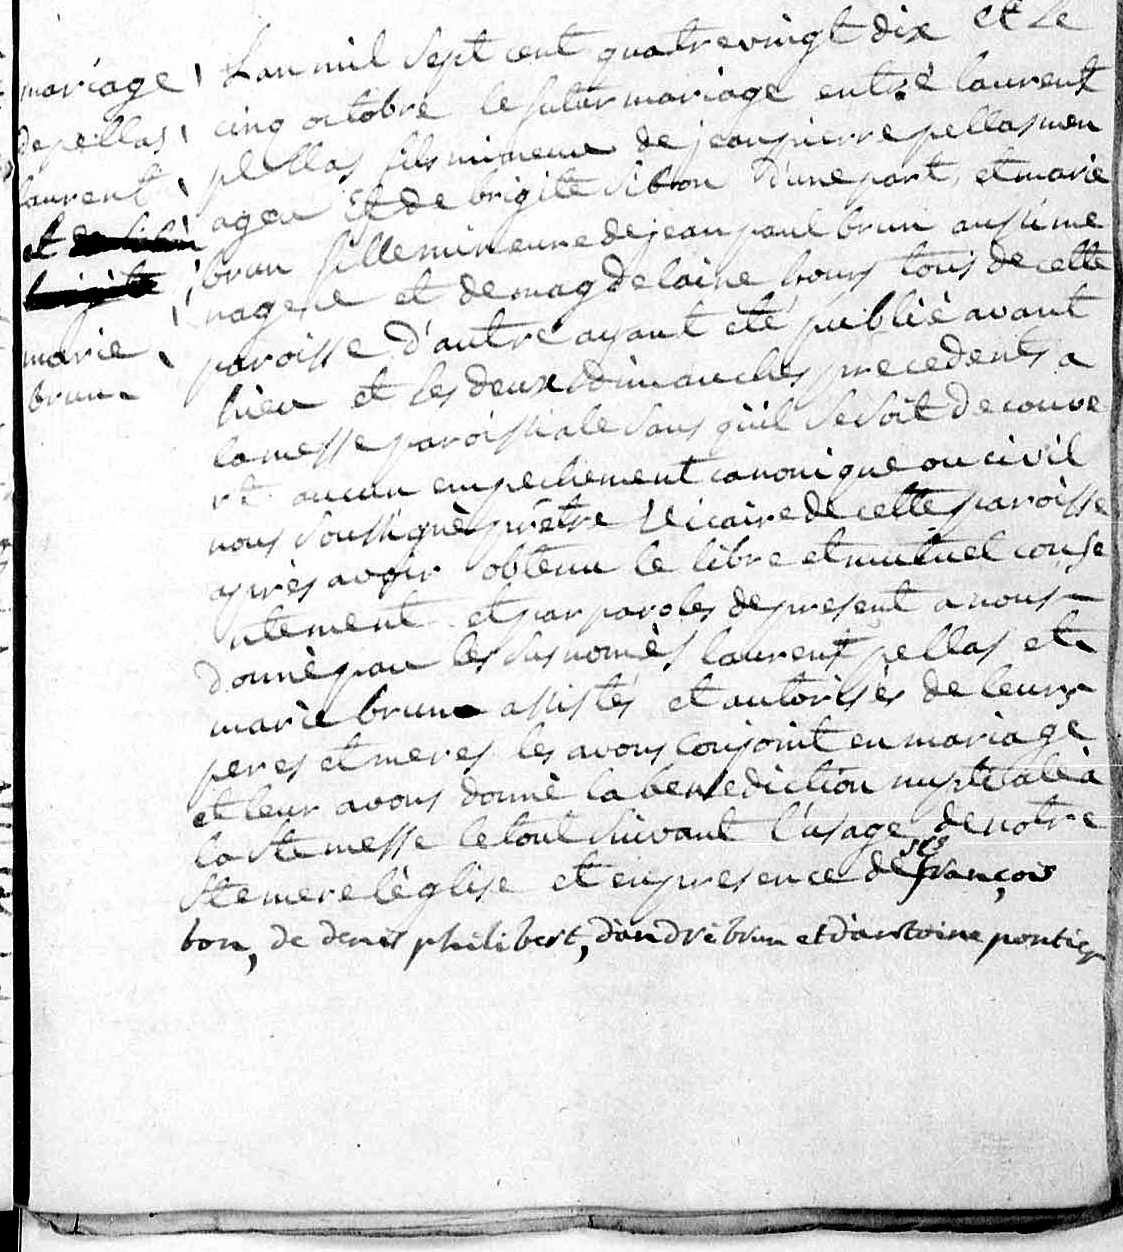 mariage
de pellas
laurent
et
marie
brun
Lan mil sept cent quatrevingt dix et le
cinq octobre le futur mariage entrè laurent
pellas fils mineur de jean pierre pellas men
ager et de brigite sibon d'une part, et marie
brun fille mineure de jean paul brun aussi me
nager et de magdelaine bours tous de cette
paroisse d'autre ayant eté publiè avant
hier et les deux dimanches precedents a
la messe paroissiale sans qu'il se soit decouve
rt aucun empechement canonique ou civil
nous soussignè prêtre vicaire de cette paroisse
après avoir obtenu le libre et mutuel conse
ntement et par paroles de present a nous
donnè par les susnomès laurent pellas et
marie brun assistés et autorisés de leurs
peres et meres les avons conjoint en mariage
et leur avons donnè la benediction nuptiale à
la ste messe le tout suivant l'usage de notre
ste mere l'èglise et en presence de srs françois
bon, de denis philibert, d'andrè brun et d'antoine pontier